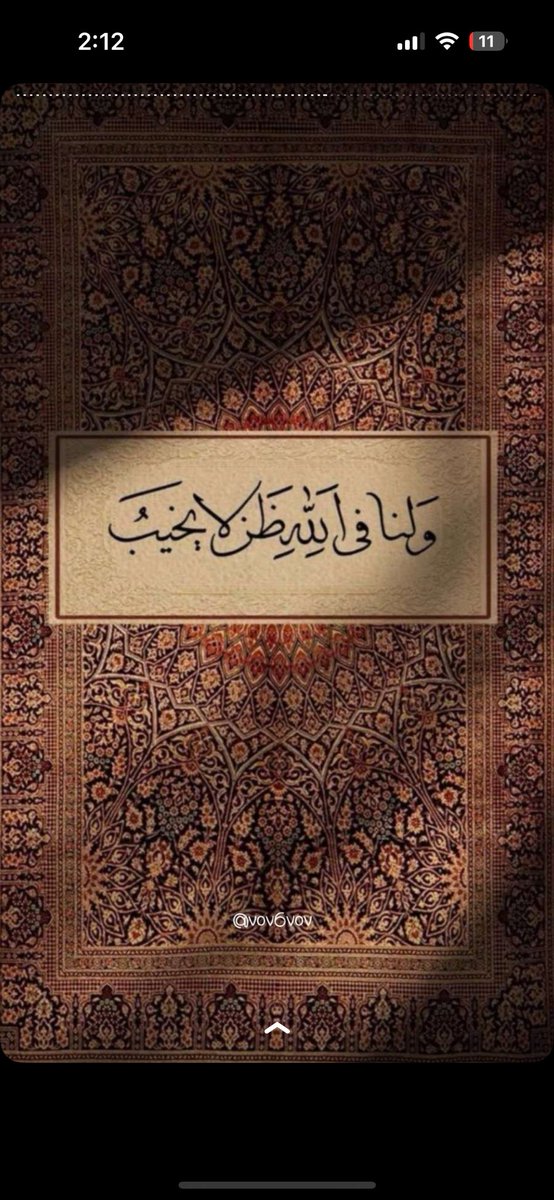 2:12
11
وَلنا في اَللّٰهِ ظَنٌ لا يخيَبُ
@vov6vov